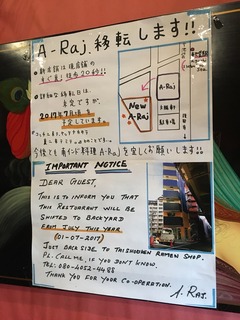 A-Raj 移転します!!
・新店舗は現店舗の
すぐ裏!! 徒歩20秒!!
・詳細な移転日は
未定ですが、
2017年7月1日を
予定しています。
A-Raj
New
A-Raj
駐車場
今後とも南インド料理 A-Rajを宜しくお願いします!!
IMPORTANT NOTICE
DEAR GUEST,
THIS IS TO INFORM YOU THAT
THIS RESTAURANT WILL BE
SHIFTED TO BACKYARD
FROM JULY THIS YEAR
(01-07-2017)
JUST BACKSIDE TO TAISHOUKEN RAMEN SHOP.
PL. CALL ME, IF YOU DON'T KNOW.
TEL: 080-4052-4488
THANK YOU FOR YOUR CO-OPERATION.
A. RAJ.